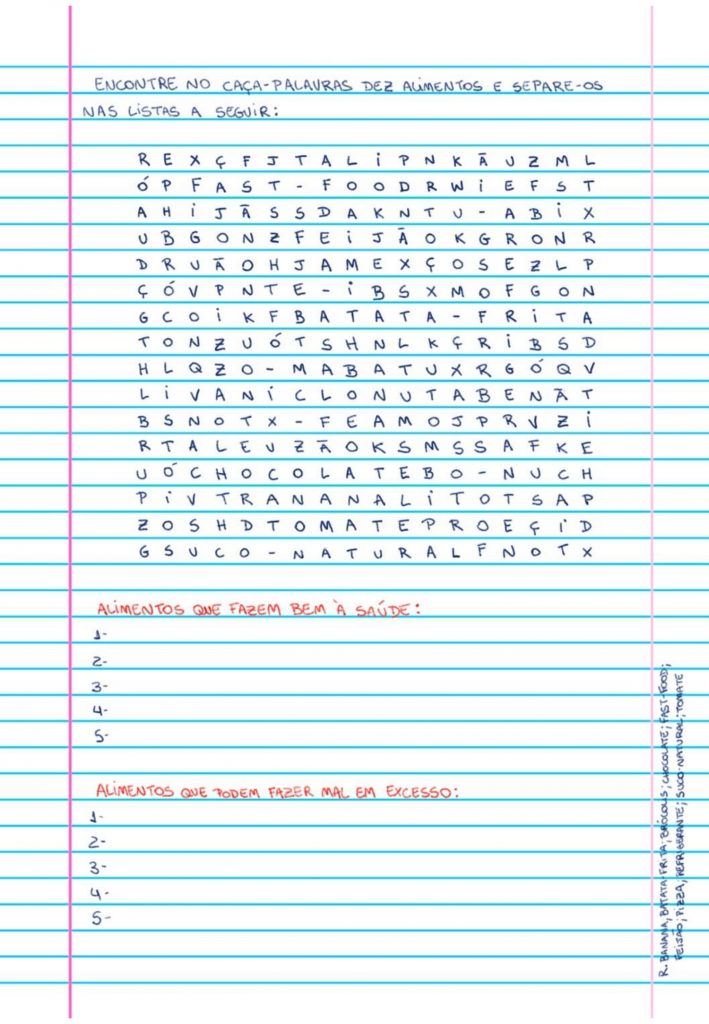 ENCONTRE NO CAÇA-PALAVRAS DEZ ALIMENTOS E SEPARE-OS
NAS LISTAS A SEGUIR:
R E X Ç F J T A L I P N K Ã U Z M L
Ó P F A S T - F O O D R W I E F S T
A H I J Ã S S D A K N T U - A B I X
U B G O N Z F E I J Ã O K G R O N R
D R U Ã O H J A M E X Ç O S E Z L P
Ç Ó V P N T E - I B S X M O F G O N
G C O I K F B A T A T A - F R I T A
T O N Z U Ó T S H N L K Ç R I B S D
H L Q Z O - M A B A T U X R G Ó Q V
L I V A N I C L O N U T A B E N Ã T
B S N O T X - F E A M O J P R V Z I
R T A L E V Z Ã O K S M S S A F K E
U Ó C H O C O L A T E B O - N U C H
P I V T R A N A N A L I T O T S A P
Z O S H D T O M A T E P R O E Ç I D
G S U C O - N A T U R A L F N O T X
ALIMENTOS QUE FAZEM BEM À SAÚDE:
1-
2-
3-
4-
5-
ALIMENTOS QUE PODEM FAZER MAL EM EXCESSO:
1-
2-
3-
4-
5-
R. BANANA, BATATA-FRITA; BRÓCOLIS; CHOCOLATE; FAST-FOOD;
FEIJÃO; PIZZA; REFRIGERANTE; SUCO-NATURAL; TOMATE